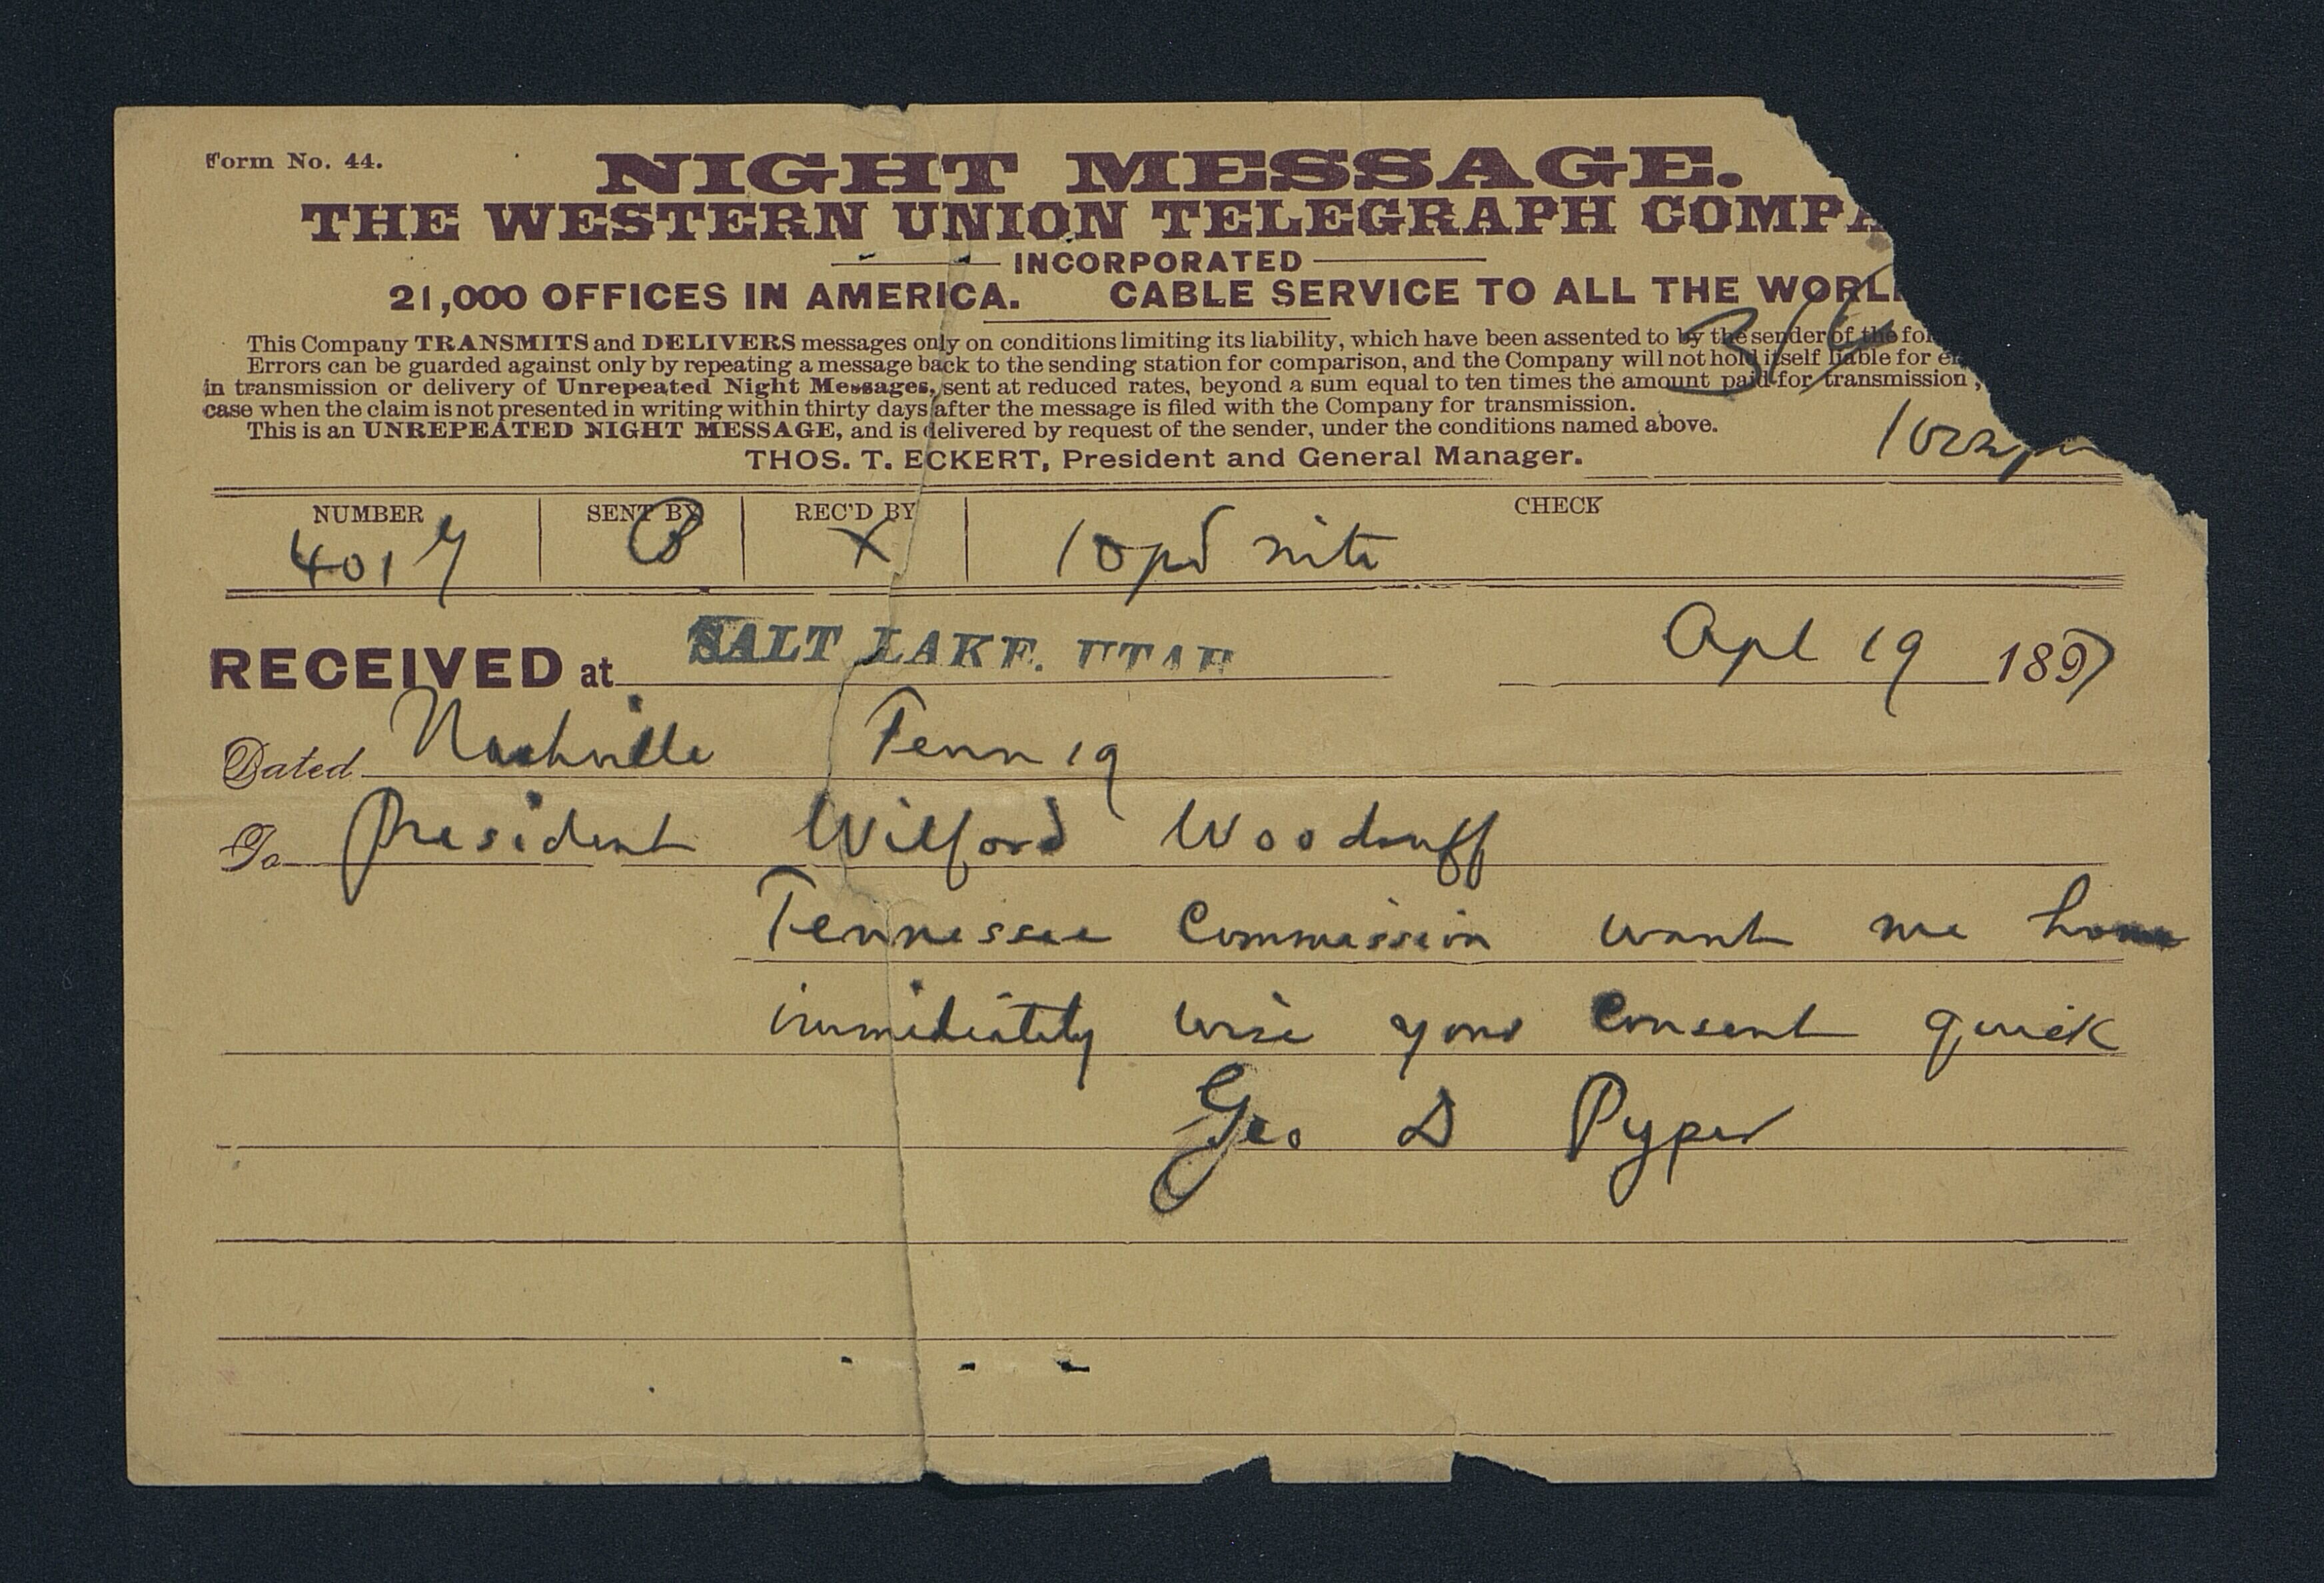 Form No. 44.
NIGHT MESSAGE.
THE WESTERN UNION TELEGRAPH COMPA
INCORPORATED
21,000 OFFICES IN AMERICA. CABLE SERVICE TO ALL THE WORL
This Company TRANSMITS and DELIVERS messages only on conditions limiting its liability, which have been assented to by the sender of the fol
Errors can be guarded against only by repeating a message back to the sending station for comparison, and the Company will not hold itself liable for er
in transmission or delivery of Unrepeated Night Messages, sent at reduced rates, beyond a sum equal to ten times the amount paid for transmission,
case when the claim is not presented in writing within thirty days after the message is filed with the Company for transmission.
This is an UNREPEATED NIGHT MESSAGE, and is delivered by request of the sender, under the conditions named above.
THOS. T. ECKERT, President and General Manager.
NUMBER SENT BY REC'D BY CHECK
B X 10 pd nite
RECEIVED at SALT LAKE, UTAH Apl 19 1897
Dated Nashville Tenn 19
To President Wilford Woodruff
Tennessee Commission want me home
immediately wire your consent quick
Geo D Pyper